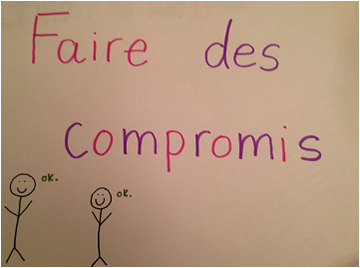 Faire des
compromis
OK.
OK.